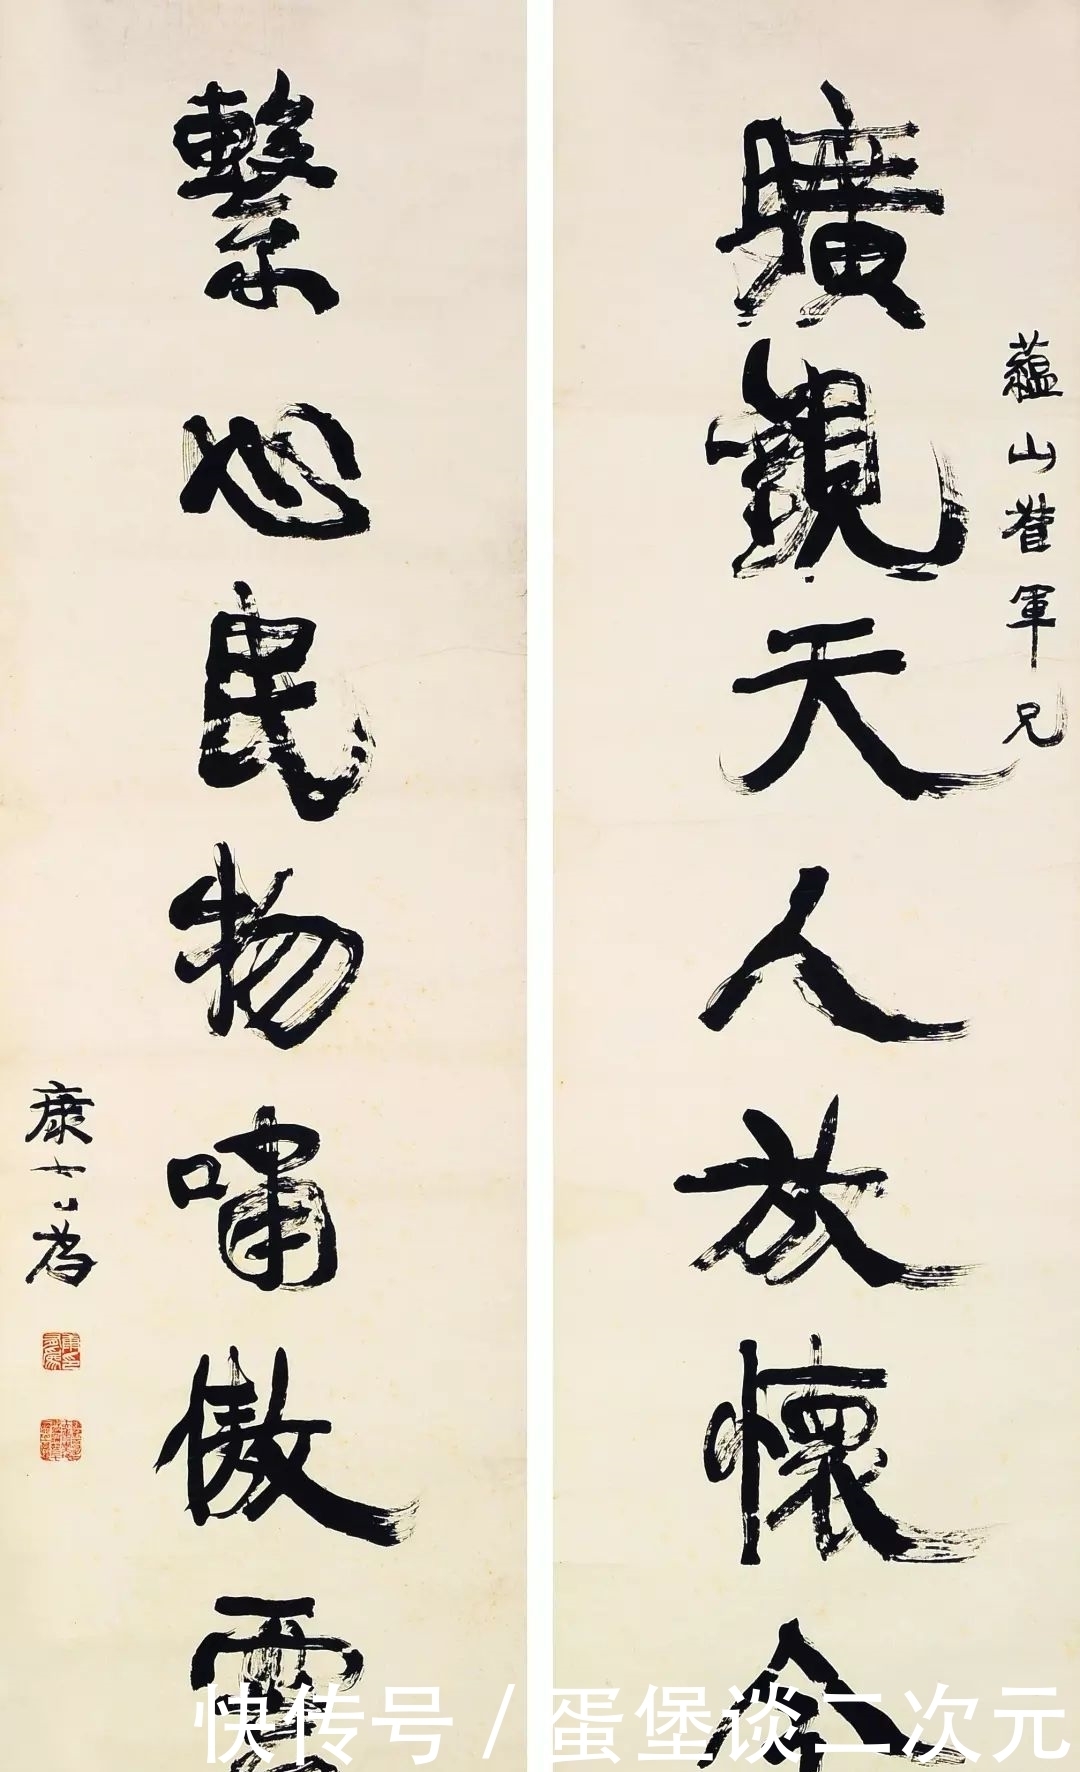 蘊山督軍兄
曠觀天人放懷今
繫心民物嘯傲
康有為
快传号 / 蛋堡谈二次元